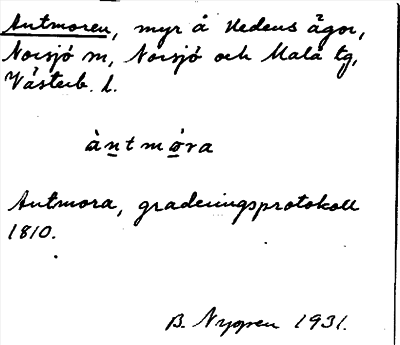 Antmoren, myr å Hedens ägor,
Norsjö m, Norsjö och Malå tg,
Västerb. l.
àntmóra
Antmora, graderingsprotokoll
1810.
B. Nygren 1931.